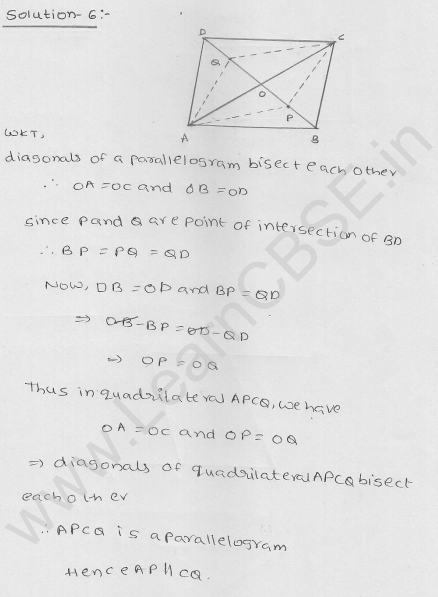 Solution-6:-
D
C
Q
O
P
A
B
WKT,
diagonals of a parallelogram bisect each other
∴ OA = OC and OB = OD
since P and Q are point of intersection of BD
∴ BP = PQ = QD
Now, OB = OD and BP = QD
⇒ OB - BP = OD - QD
⇒ OP = OQ
Thus in quadrilateral APCQ, we have
OA = OC and OP = OQ
⇒ diagonals of quadrilateral APCQ bisect
each other
∴ APCQ is a parallelogram
Hence AP || CQ.
www.LearnCBSE.in